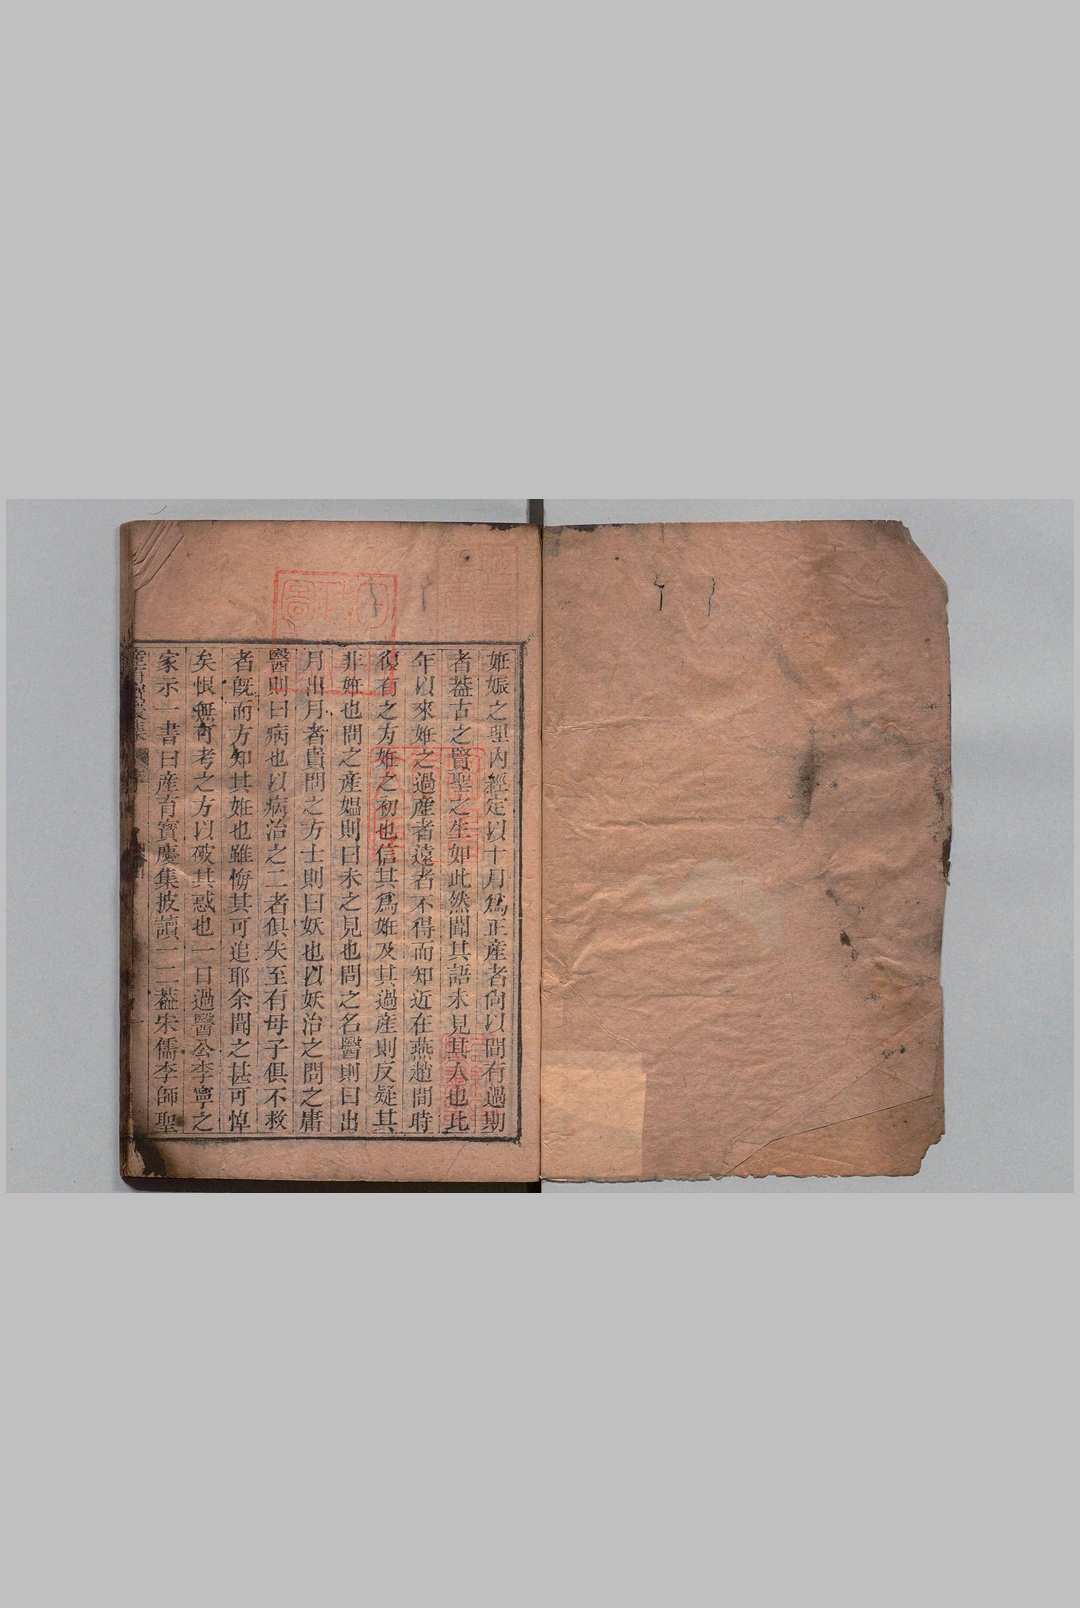 姙娠之理內經定以十月爲正產者尙以間有過期
者葢古之賢聖之生如此然聞其語未見其人也比
年以來姙之過產者遠者不得而知近在燕趙間時
復有之方姙之初也信其爲姙及其過產則反疑其
非姙也問之產媼則曰未之見也問之名醫則曰出
月出月者貴問之方士則曰妖也以妖治之問之庸
醫則曰病也以病治之二者俱失至有母子俱不救
者旣而方知其姙也雖悔其可追耶余聞之甚可悼
矣恨無可考之方以破其惑也一日過醫公李寧之
家示一書曰産育寶慶集披讀一二葢宋儒李師聖